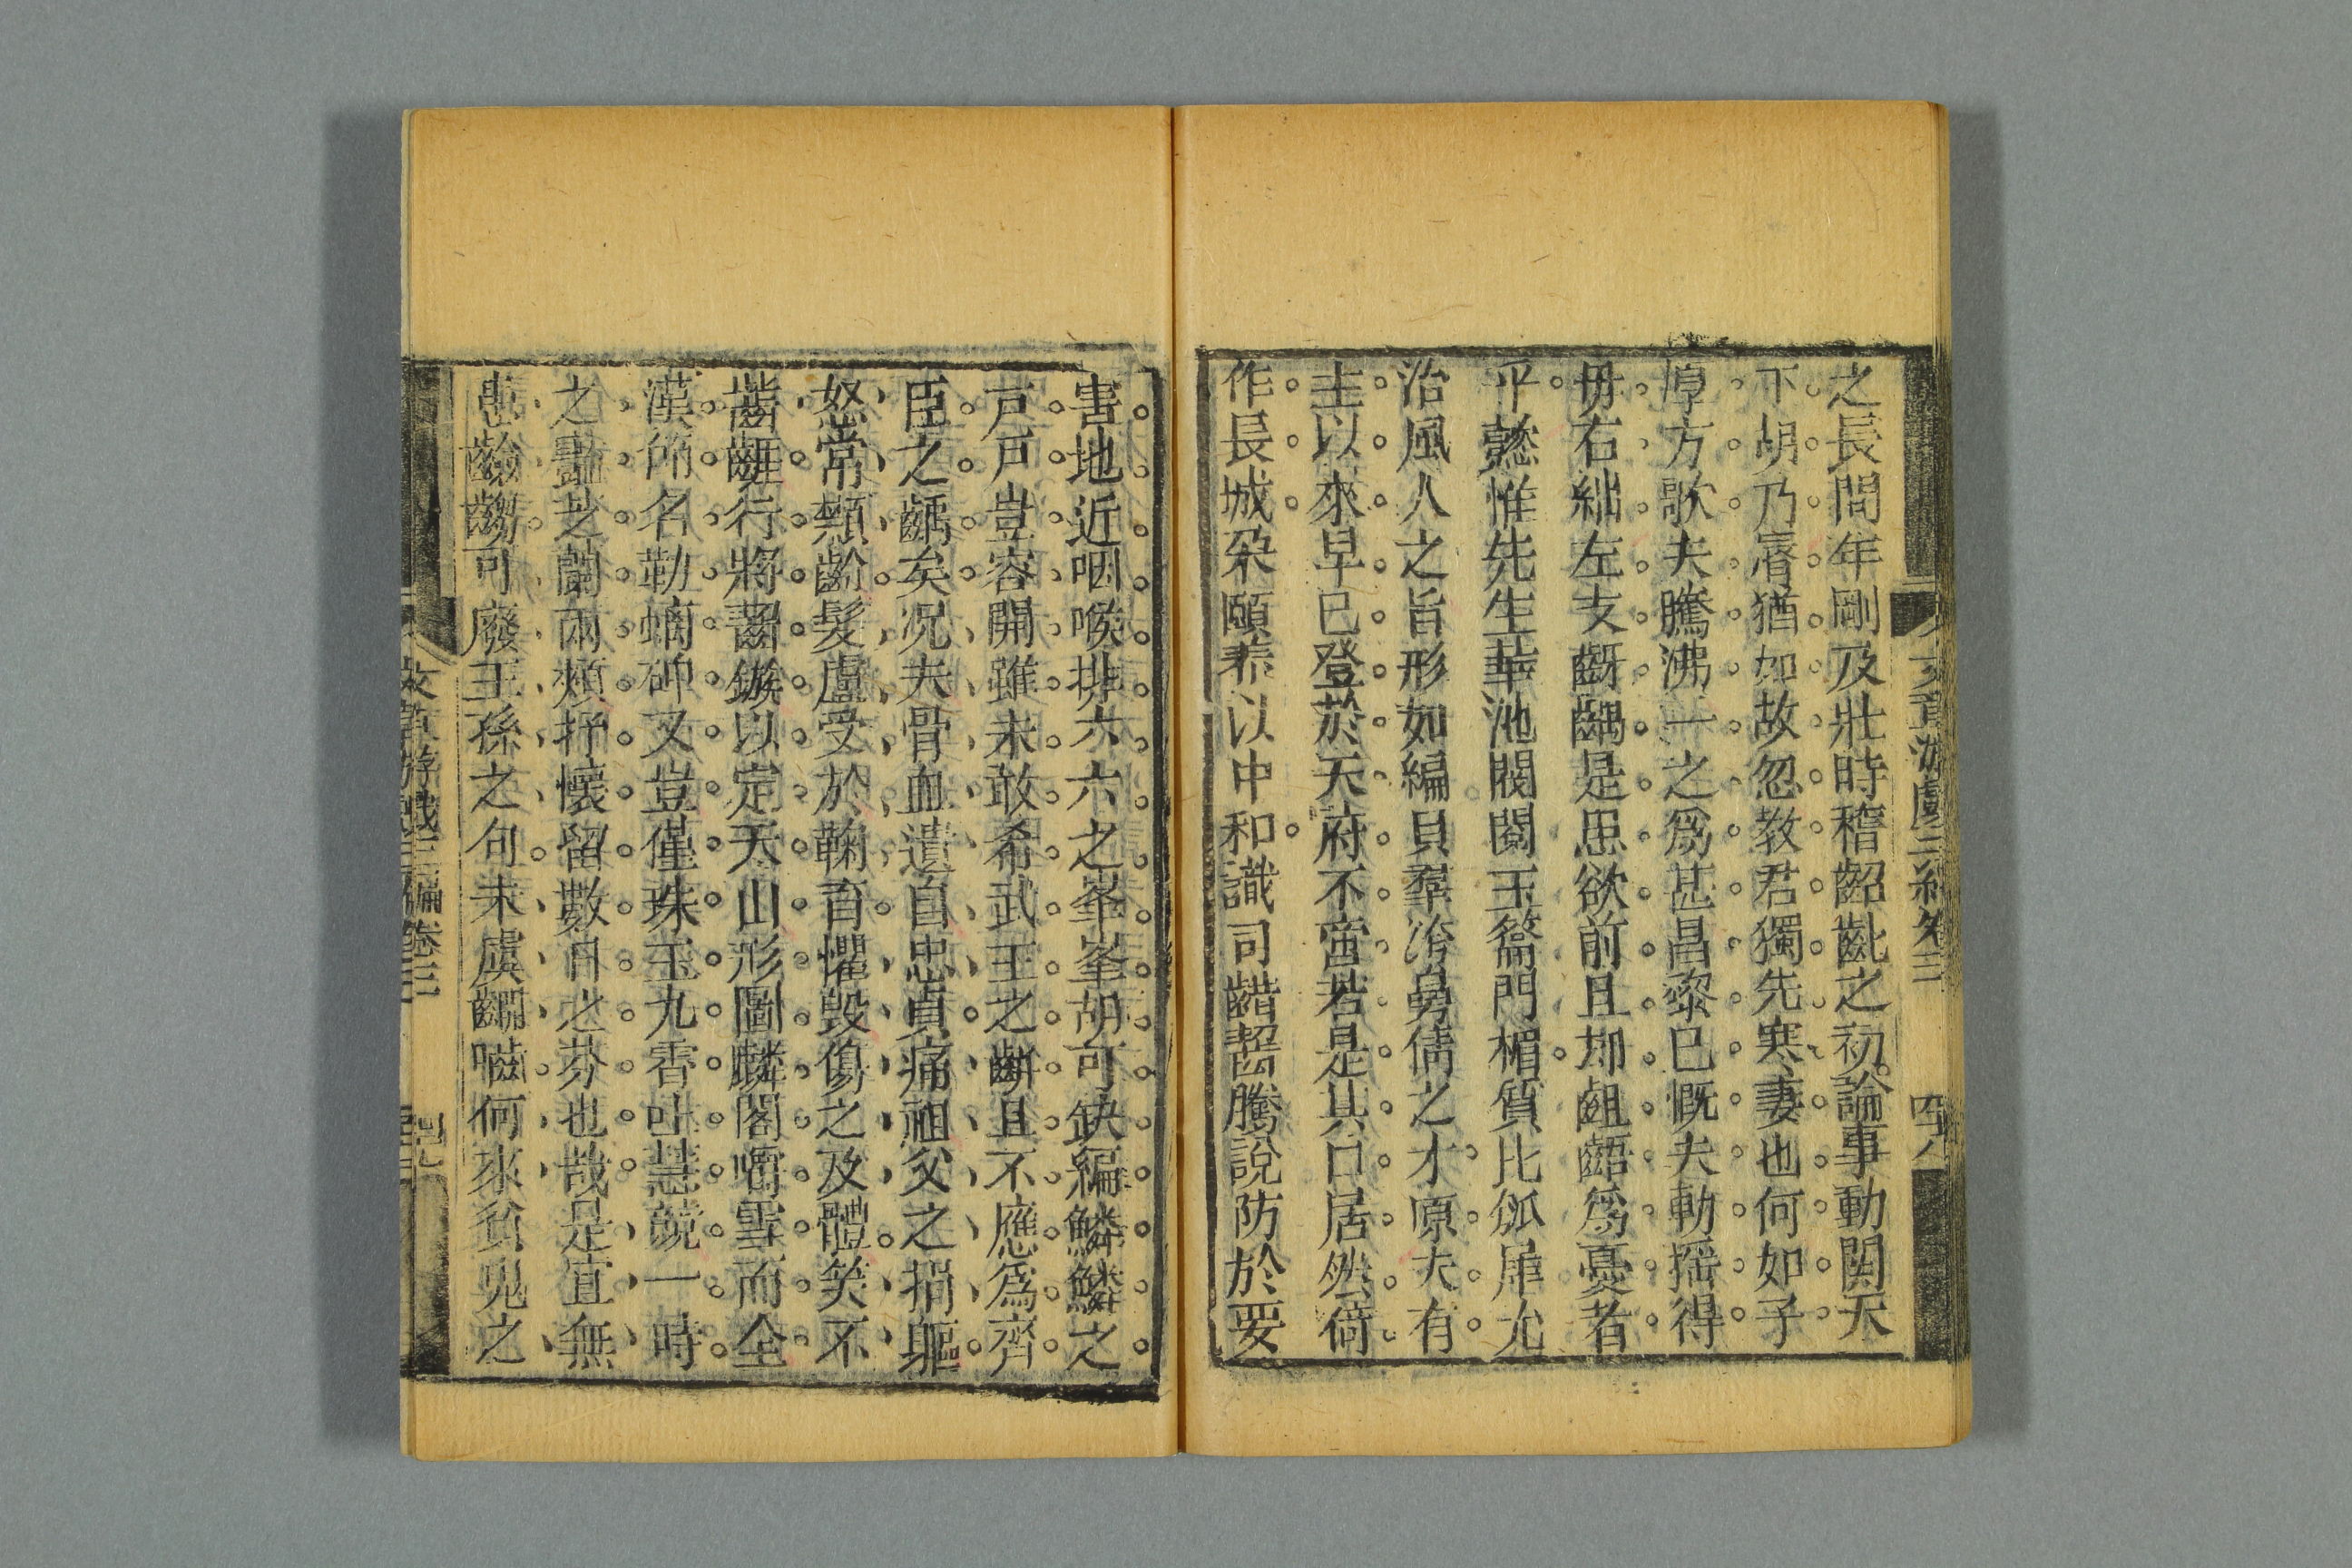 之長間年剛及壯時稽齠齔之初論事動関天
下胡乃脣猶如故忽教君獨先寒妻也何如子
厚方歌夫騰沸一之爲甚昌黎已慨夫動摇得
毋右絀左支齖齵是思欲前且却齟齬爲憂者
乎懿惟先生華池閥閱玉籥門楣質比弧犀尤
治風人之旨形如編貝羣誇曼倩之才原夫有
生以來早已登於天府不啻若是其口居然倚
作長城朶頤養以中和識司齰齧騰說防於要
害地近咽喉排六六之峯峯胡可缺編鱗鱗之
戸戸豈容開雖未敢希武王之齞且不應爲齊
臣之齲矣况夫骨血遺自忠貞痛祖父之捐軀
怒常類齡髮盧受於鞠育懼毀傷之及體笑不
齒齜行將齧鏃以定天山形圖麟閣嚼雪而全
漢節名勒蝸碑又豈僅珠玉九霄吐慧競一時
之艷芝蘭兩頰抒懷留數日之芬也哉是宜無
患齾可廢王孫之句未虞齫嚙何來貧鬼之
文章游戲三編卷三
四八
文章游戲三編卷三